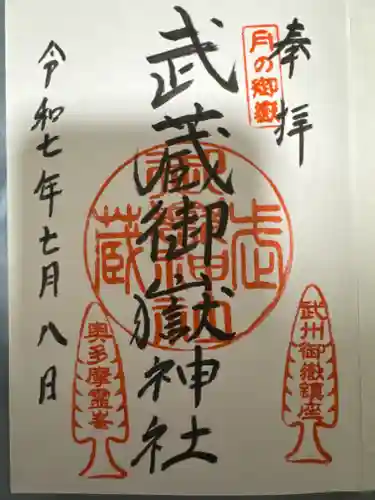 奉拝
月の御嶽
武州御嶽鎮座
武蔵御嶽神社
奥多摩霊峯
令和七年七月八日